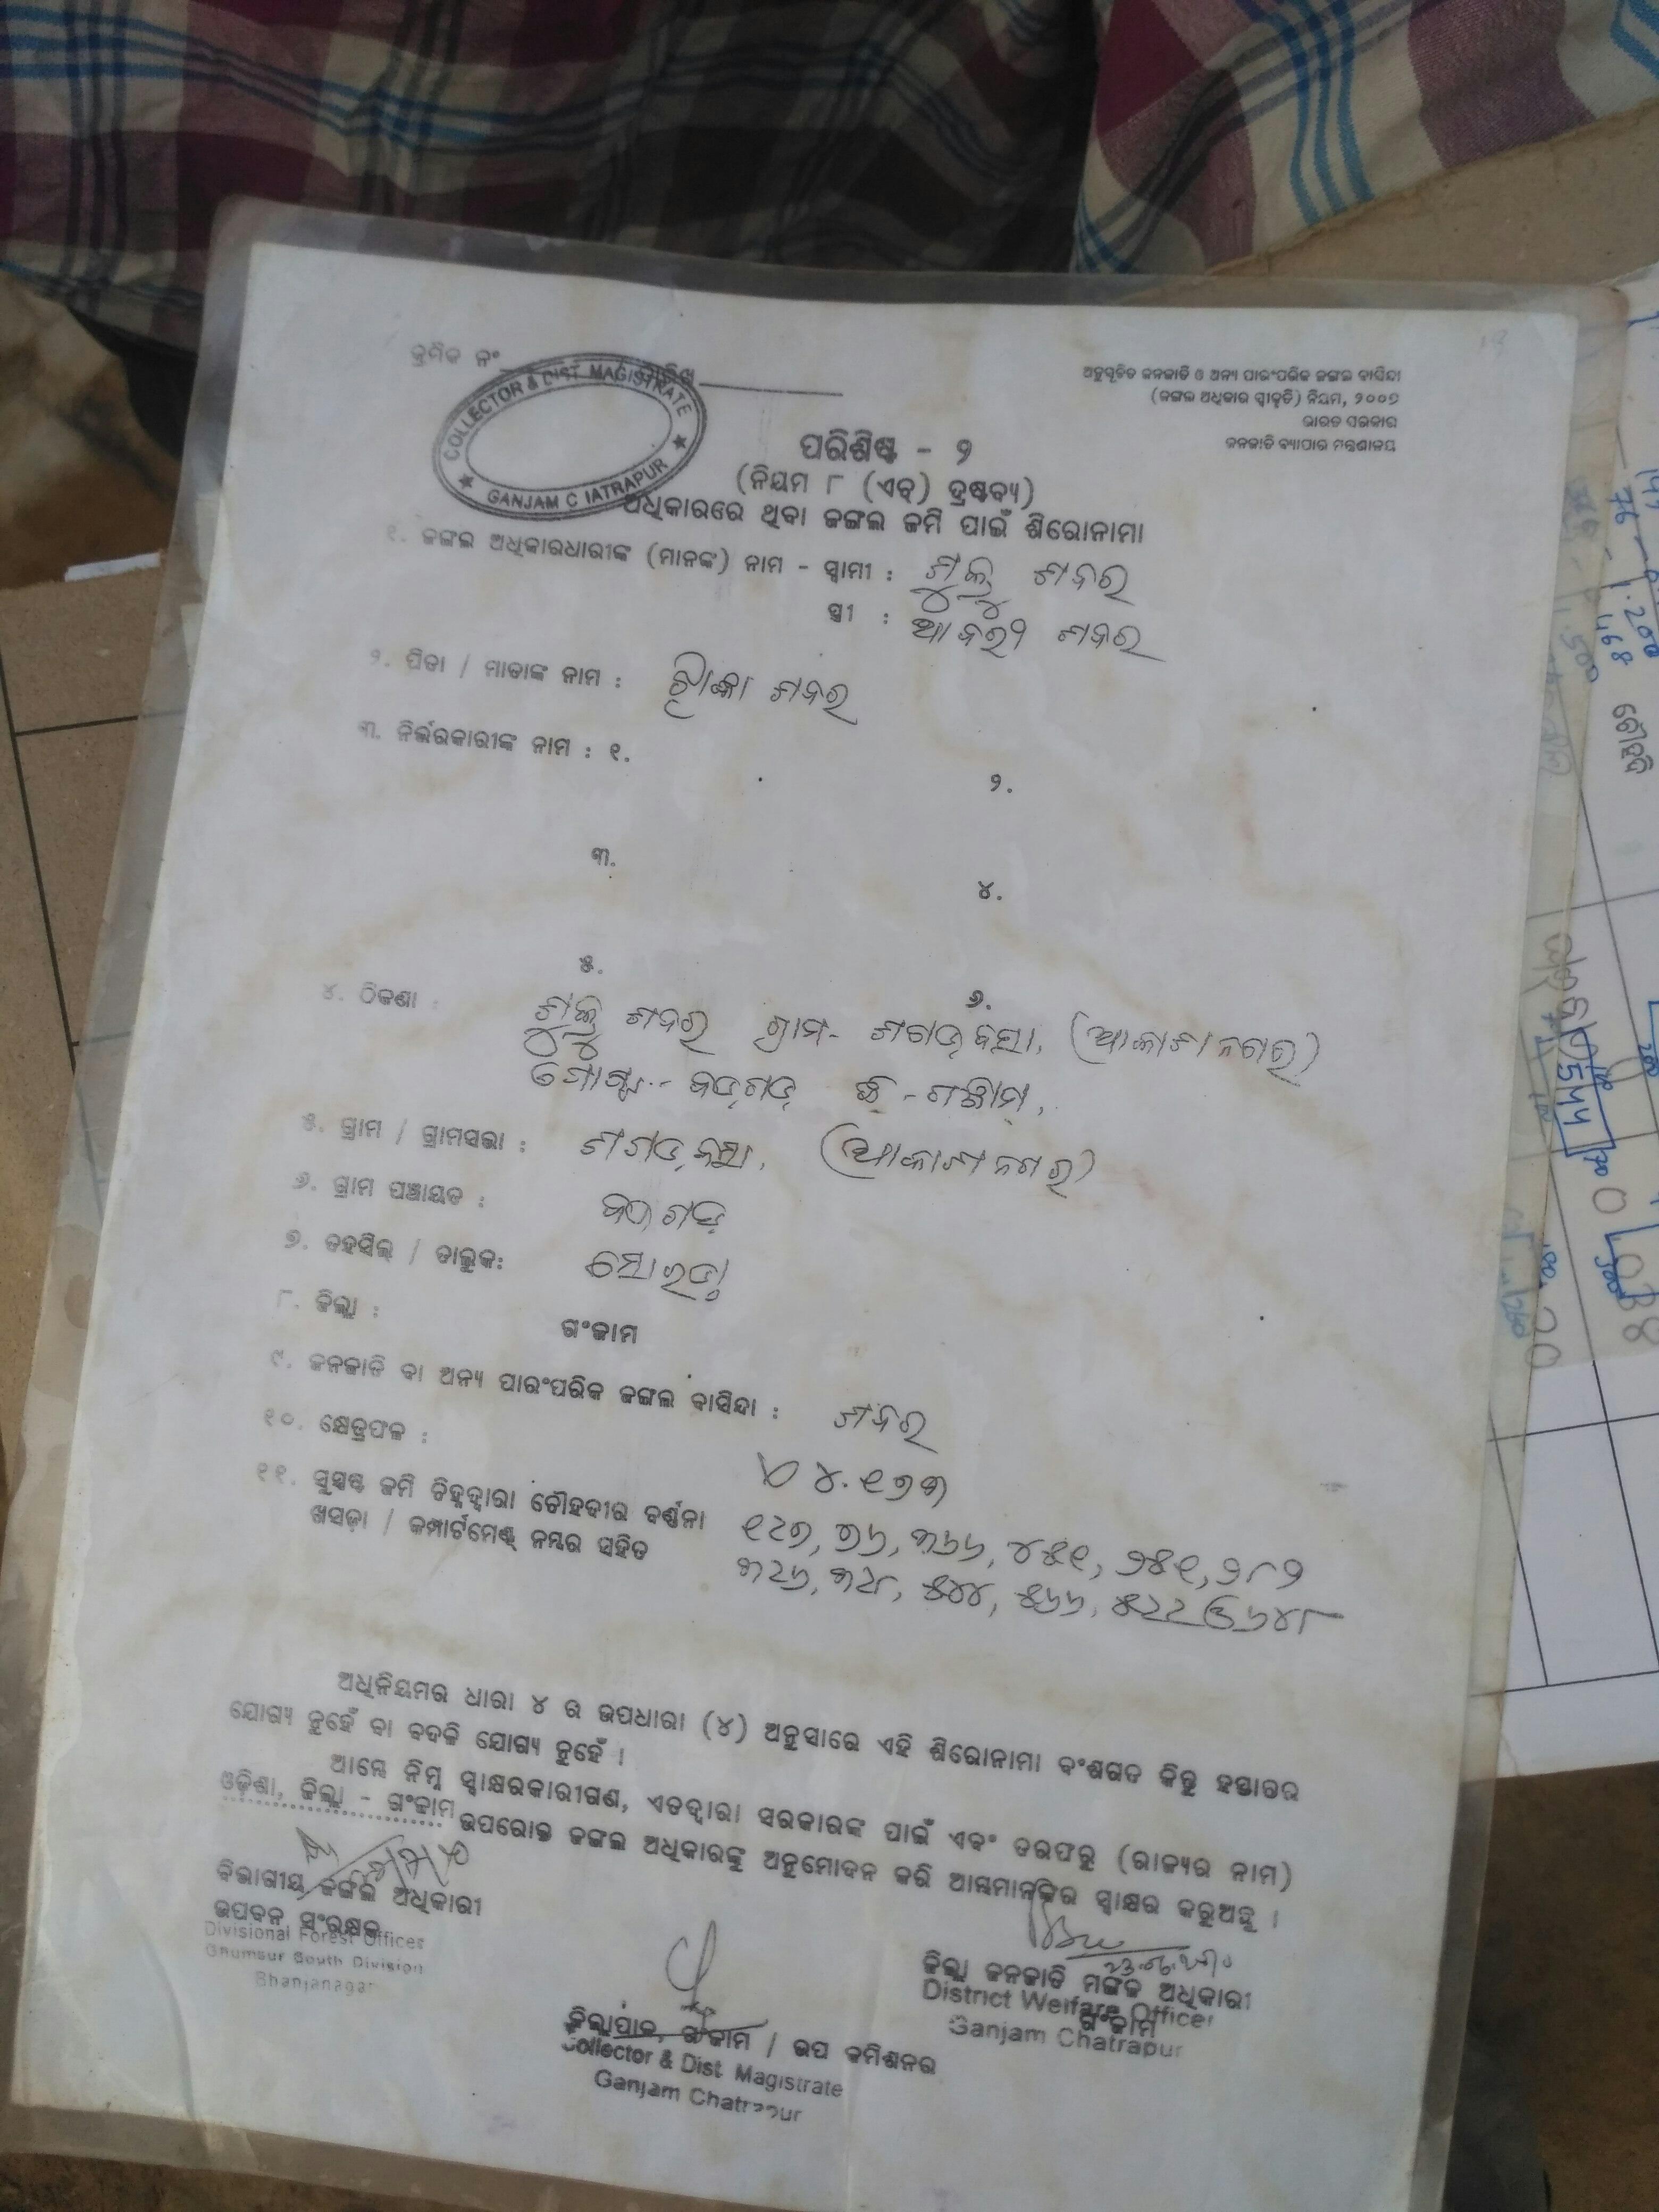 କ୍ରମିକ ନଂ ତାରିଖ
COLLECTOR & DIST MAGISTRATE
GANJAM C IATRAPUR
ଅନୁସୂଚିତ ଜନଜାତି ଓ ଅନ୍ୟ ପାରଂପରିକ ଜଙ୍ଗଲ ବାସିନ୍ଦା
(ଜଙ୍ଗଲ ଅଧିକାର ସ୍ୱୀକୃତି) ନିୟମ, ୨୦୦୭
ଭାରତ ସରକାର
ଜନଜାତି ବ୍ୟାପାର ମନ୍ତ୍ରଣାଳୟ
ପରିଶିଷ୍ଟ - ୨
(ନିୟମ ୮ (ଏବ୍) ଦ୍ରଷ୍ଟବ୍ୟ)
ଅଧିକାରରେ ଥିବା ଜଙ୍ଗଲ ଜମି ପାଇଁ ଶିରୋନାମା
୧. ଜଙ୍ଗଲ ଅଧିକାରଧାରୀଙ୍କ (ମାନଙ୍କ) ନାମ - ସ୍ୱାମୀ : ଶବର
ସ୍ତ୍ରୀ : ଶବର
୨. ପିତା / ମାତାଙ୍କ ନାମ : ଶବର
୩. ନିର୍ଭରକାରୀଙ୍କ ନାମ : ୧.
୨.
୩.
୪.
୫.
୬.
୪. ଠିକଣା : ଶବର ଗ୍ରାମ- (ଆକାଶ ନଗର)
ବଡ଼ଗଡ଼ ଜି - ଗଞ୍ଜାମ,
୫. ଗ୍ରାମ / ଗ୍ରାମସଭା : (ଆକାଶ ନଗର)
୬. ଗ୍ରାମ ପଞ୍ଚାୟତ : ବଡଗଡ଼
୭. ତହସିଲ୍ / ତାଲୁକ: ସୋରଡ଼ା
୮. ଜିଲ୍ଲା : ଗଂଜାମ
୯. ଜନଜାତି ବା ଅନ୍ୟ ପାରଂପରିକ ଜଙ୍ଗଲ ବାସିନ୍ଦା : ଶବର
୧୦. କ୍ଷେତ୍ରଫଳ : ୪.୧୭୩
୧୧. ସୁସ୍ପଷ୍ଟ ଜମି ଚିହ୍ନଦ୍ୱାରା ଚୌହଦୀର ବର୍ଣ୍ଣନା ୧୨୭, ୭୬, ୩୬୬, ୪୫୧, ୨୫୧, ୨୮୨
ଖସଡ଼ା / କମ୍ପାର୍ଟମେଣ୍ଟ୍ ନମ୍ବର ସହିତ ୩୨୬, ୩୨୮, ୫୪୪, ୫୬୬, ୫୨୨ ଓ ୬୪୮
ଅଧିନିୟମର ଧାରା ୪ ର ଉପଧାରା (୪) ଅନୁସାରେ ଏହି ଶିରୋନାମା ବଂଶଗତ କିନ୍ତୁ ହସ୍ତାନ୍ତର
ଯୋଗ୍ୟ ନୁହେଁ ବା ବଦଳି ଯୋଗ୍ୟ ନୁହେଁ ।
ଆମ୍ଭେ ନିମ୍ନ ସ୍ୱାକ୍ଷରକାରୀଗଣ, ଏତଦ୍ୱାରା ସରକାରଙ୍କ ପାଇଁ ଏବଂ ତରଫରୁ (ରାଜ୍ୟର ନାମ)
ଓଡ଼ିଶା, ଜିଲ୍ଲା - ଗଂଜାମ ଉପରୋକ୍ତ ଜଙ୍ଗଲ ଅଧିକାରଙ୍କୁ ଅନୁମୋଦନ କରି ଆମ୍ଭମାନଙ୍କର ସ୍ୱାକ୍ଷର କରୁଅଛୁ ।
ବିଭାଗୀୟ ଜଙ୍ଗଲ ଅଧିକାରୀ
ଉପବନ ସଂରକ୍ଷକ
Divisional Forest Officer
Ghumsur South Division
Bhanjanagar
ଜିଲ୍ଲାପାଳ, ଗଂଜାମ / ଉପ କମିଶନର
Collector & Dist. Magistrate
Ganjam Chatrapur
ଜିଲ୍ଲା ଜନଜାତି ମଙ୍ଗଳ ଅଧିକାରୀ
ଗଂଜାମ
District Welfare Officer
Ganjam Chatrapur